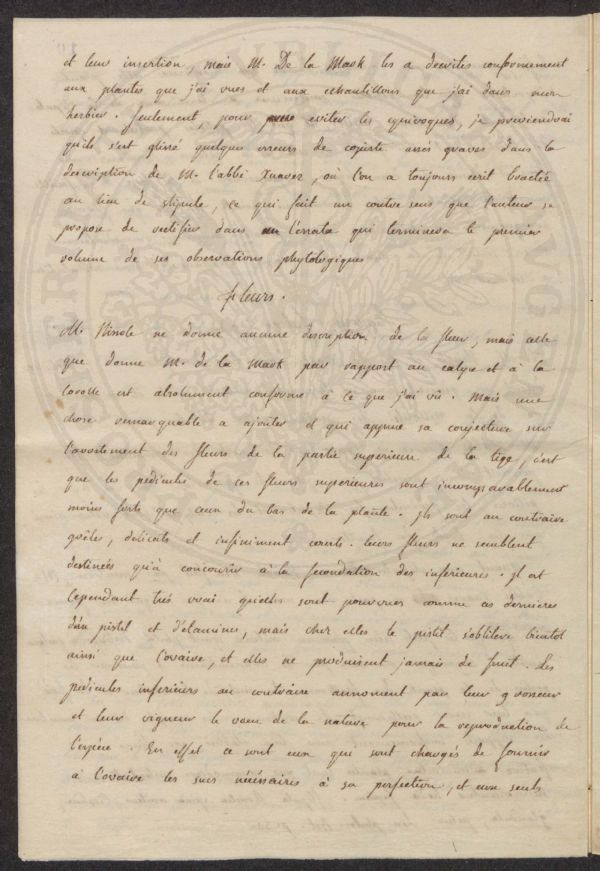 et leur insertion, mais M. De la Mark les a decrites conformement
aux plantes que j'ai vues et aux echantillons que j'ai dans mon
herbier. Seulement, pour eviter les equivoques, je previendrai
qu'ils s'est glissé quelques erreurs de copiste assés graves dans la
description de M. l'abbé Xuarez, où l'on a toujours ecrit bractée
au lieu de stipule, ce qui fait un contre sens que l'auteur se
propose de rectifier dans l'errata qui terminera le premier
volume de ses observations phytologiques
fleurs.
M. ne donne aucune description de la fleur, mais celle
que donne M. de la Mark par rapport au calyce et à la
corolle est absolument conforme à ce que j'ai vû. Mais une
chose remarquable a ajouter et qui appuie sa conjecture sur
l'avortement des fleurs de la partie superieure de la tige, c'est
que les pedicules de ces fleurs superieures sont incomparablement
moins forts que ceux du bas de la plante. Ils sont au contraire
grêles, delicats et infiniment courts. leurs fleurs ne semblent
destinées qu'à concourir à la fecondation des inferieures. Il est
cependant très vrai qu'elles sont pourvues comme ces dernieres
d'un pistil et d'etamines, mais chez elles le pistil s'oblitere bientot
ainsi que l'ovaire, et elles ne produisent jamais de fruit. Les
pedicules inferieurs au contraire annoncent par leur grosseur
et leur vigueur le voeu de la nature pour la reproduction de
l'espece. En effet ce sont eux qui sont chargés de fournir
à l'ovaire les sucs nécéssaires à sa perfection, et eux seuls